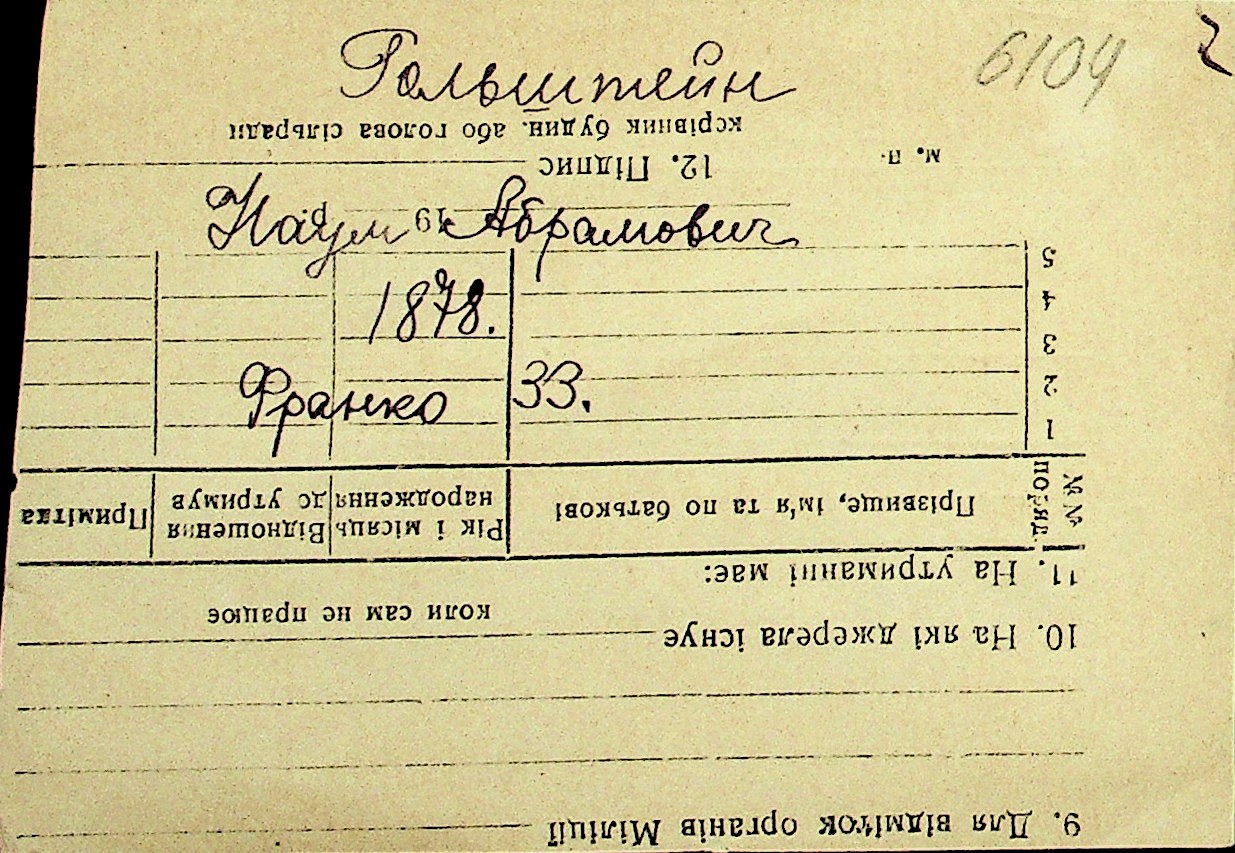 6104
Гольштейн
Наум Абрамович
1878.
Франко 33.
9. Для відміток органів Міліції
10. На які джерела існує
коли сам не працює
11. На утриманні має:
№№ поряд. Прізвище, ім'я та по батькові Рік і місяць народження Відношення до утримув Примітка
1
2
3
4
5
19 р.
м. п. 12. Підпис
керівник будин. або голова сільради